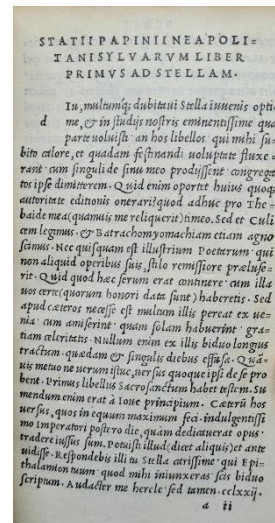 STATII PAPINII NEAPOLI-
TANI SYLVARVM LIBER
PRIMVS AD STELLAM.
d Iu, multumq́; dubitaui Stella iuuenis optí
me, & in studijs nostris eminentissime qua
parte uoluisti an hos libellos qui mihi su-
bito calore, et quadam festinandi uoluptate fluxe-
rant cum singuli de sinu meo prodijssent congrega
tos ipse dimitterem. Quid enim oportet huius quoq;
autoritate editionis onerari? quod adhuc pro The-
baide mea (quamuis me reliquerit) timeo. Sed et Culi
cem legimus, & Batrachomyomachiam etiam agno
scimus. Nec quisquam est illustrium Poetarum qui
non aliquid operibus suis, stilo remissiore præluse-
rit. Quid quod hæc serum erat continere cum illa
uos certe (quorum honori data sunt) haberetis. Sed
apud cæteros necesse est multum illis pereat ex ue-
nia cum amiserint quam solam habuerint gra-
tiam celeritatis. Nullum enim ex illis biduo longius
tractum quædam & singulis diebus effusa. Quã-
uis metuo ne uerum istuc, uersus quoque ipsi de se pro
bent. Primus libellus Sacrosanctum habet testem. Su
mendum enim erat à Ioue principium. Cæterũ hos
uersus, quos in equum maximum feci indulgentissi
mo Imperatori postero die, quàm dedicauerat opus
tradere iussus sum. Potuisti illud (dicet aliquis) et ante
uidisse. Respondebis illi tu Stella carissime qui Epi-
thalamion tuum quod mihi iniunxeras scis biduo
scriptum. Audacter me hercle sed tamen cclxxij.
a ii